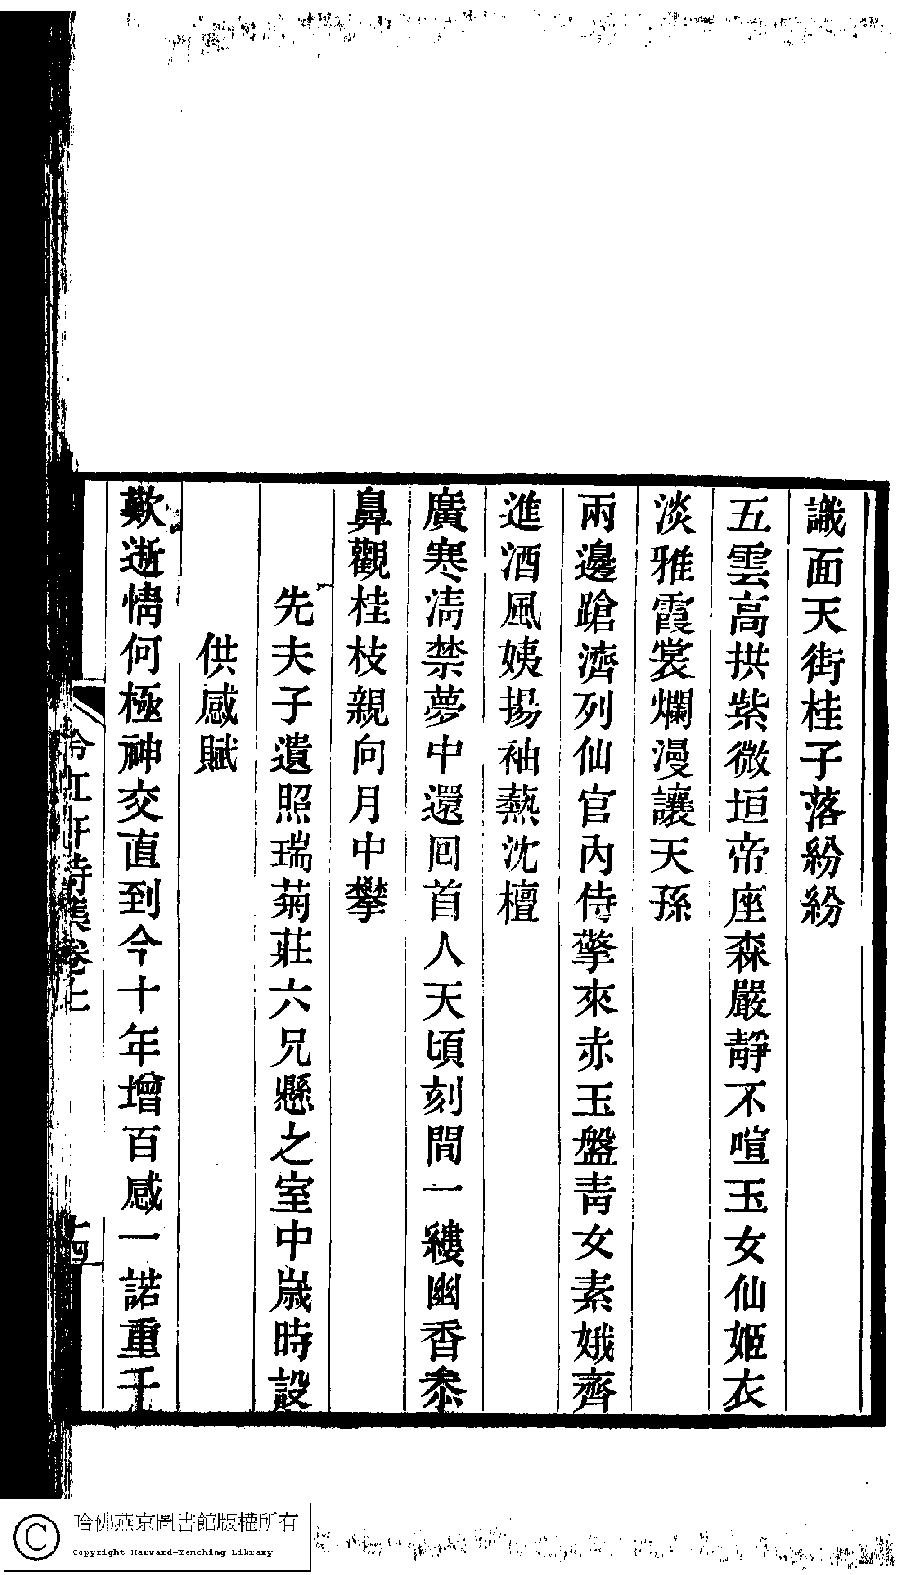 識面天街桂子落紛紛
五雲高拱紫微垣帝座森嚴靜不喧玉女仙姬衣
淡雅霞裳爛漫讓天孫
兩邊蹌濟列仙官內侍擎來赤玉盤靑女素娥齊
進酒風姨揚袖爇沈檀
廣寒淸禁夢中還回首人天頃刻間一縷幽香叅
鼻觀桂枝親向月中攀
先夫子遺照瑞菊莊六兄懸之室中嵗時設
供感賦
歎逝情何極神交直到今十年增百感一諾重千
冷紅軒詩集卷上
十四
哈佛燕京圖書館版權所有
Copyright Harvard-Yenching Library